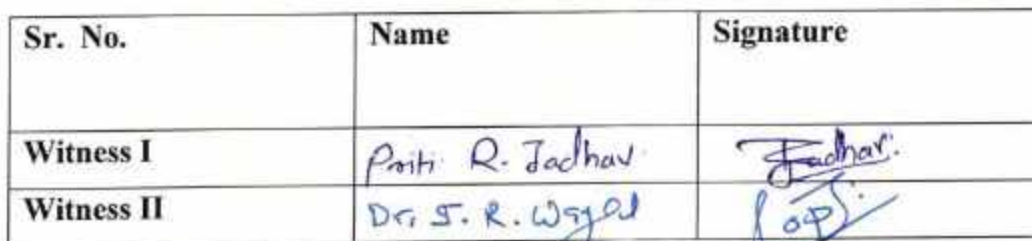 Sr. No. Name Signature
Witness I Priti R. Jadhav Jadhav.
Witness II Dr. S. R.